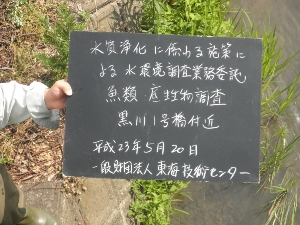 水質浄化に係よる施策に
よる水環境調査業務委託
魚類・底生物調査
黒川1号橋付近
平成23年5月20日
一般財団法人 東海技術センター